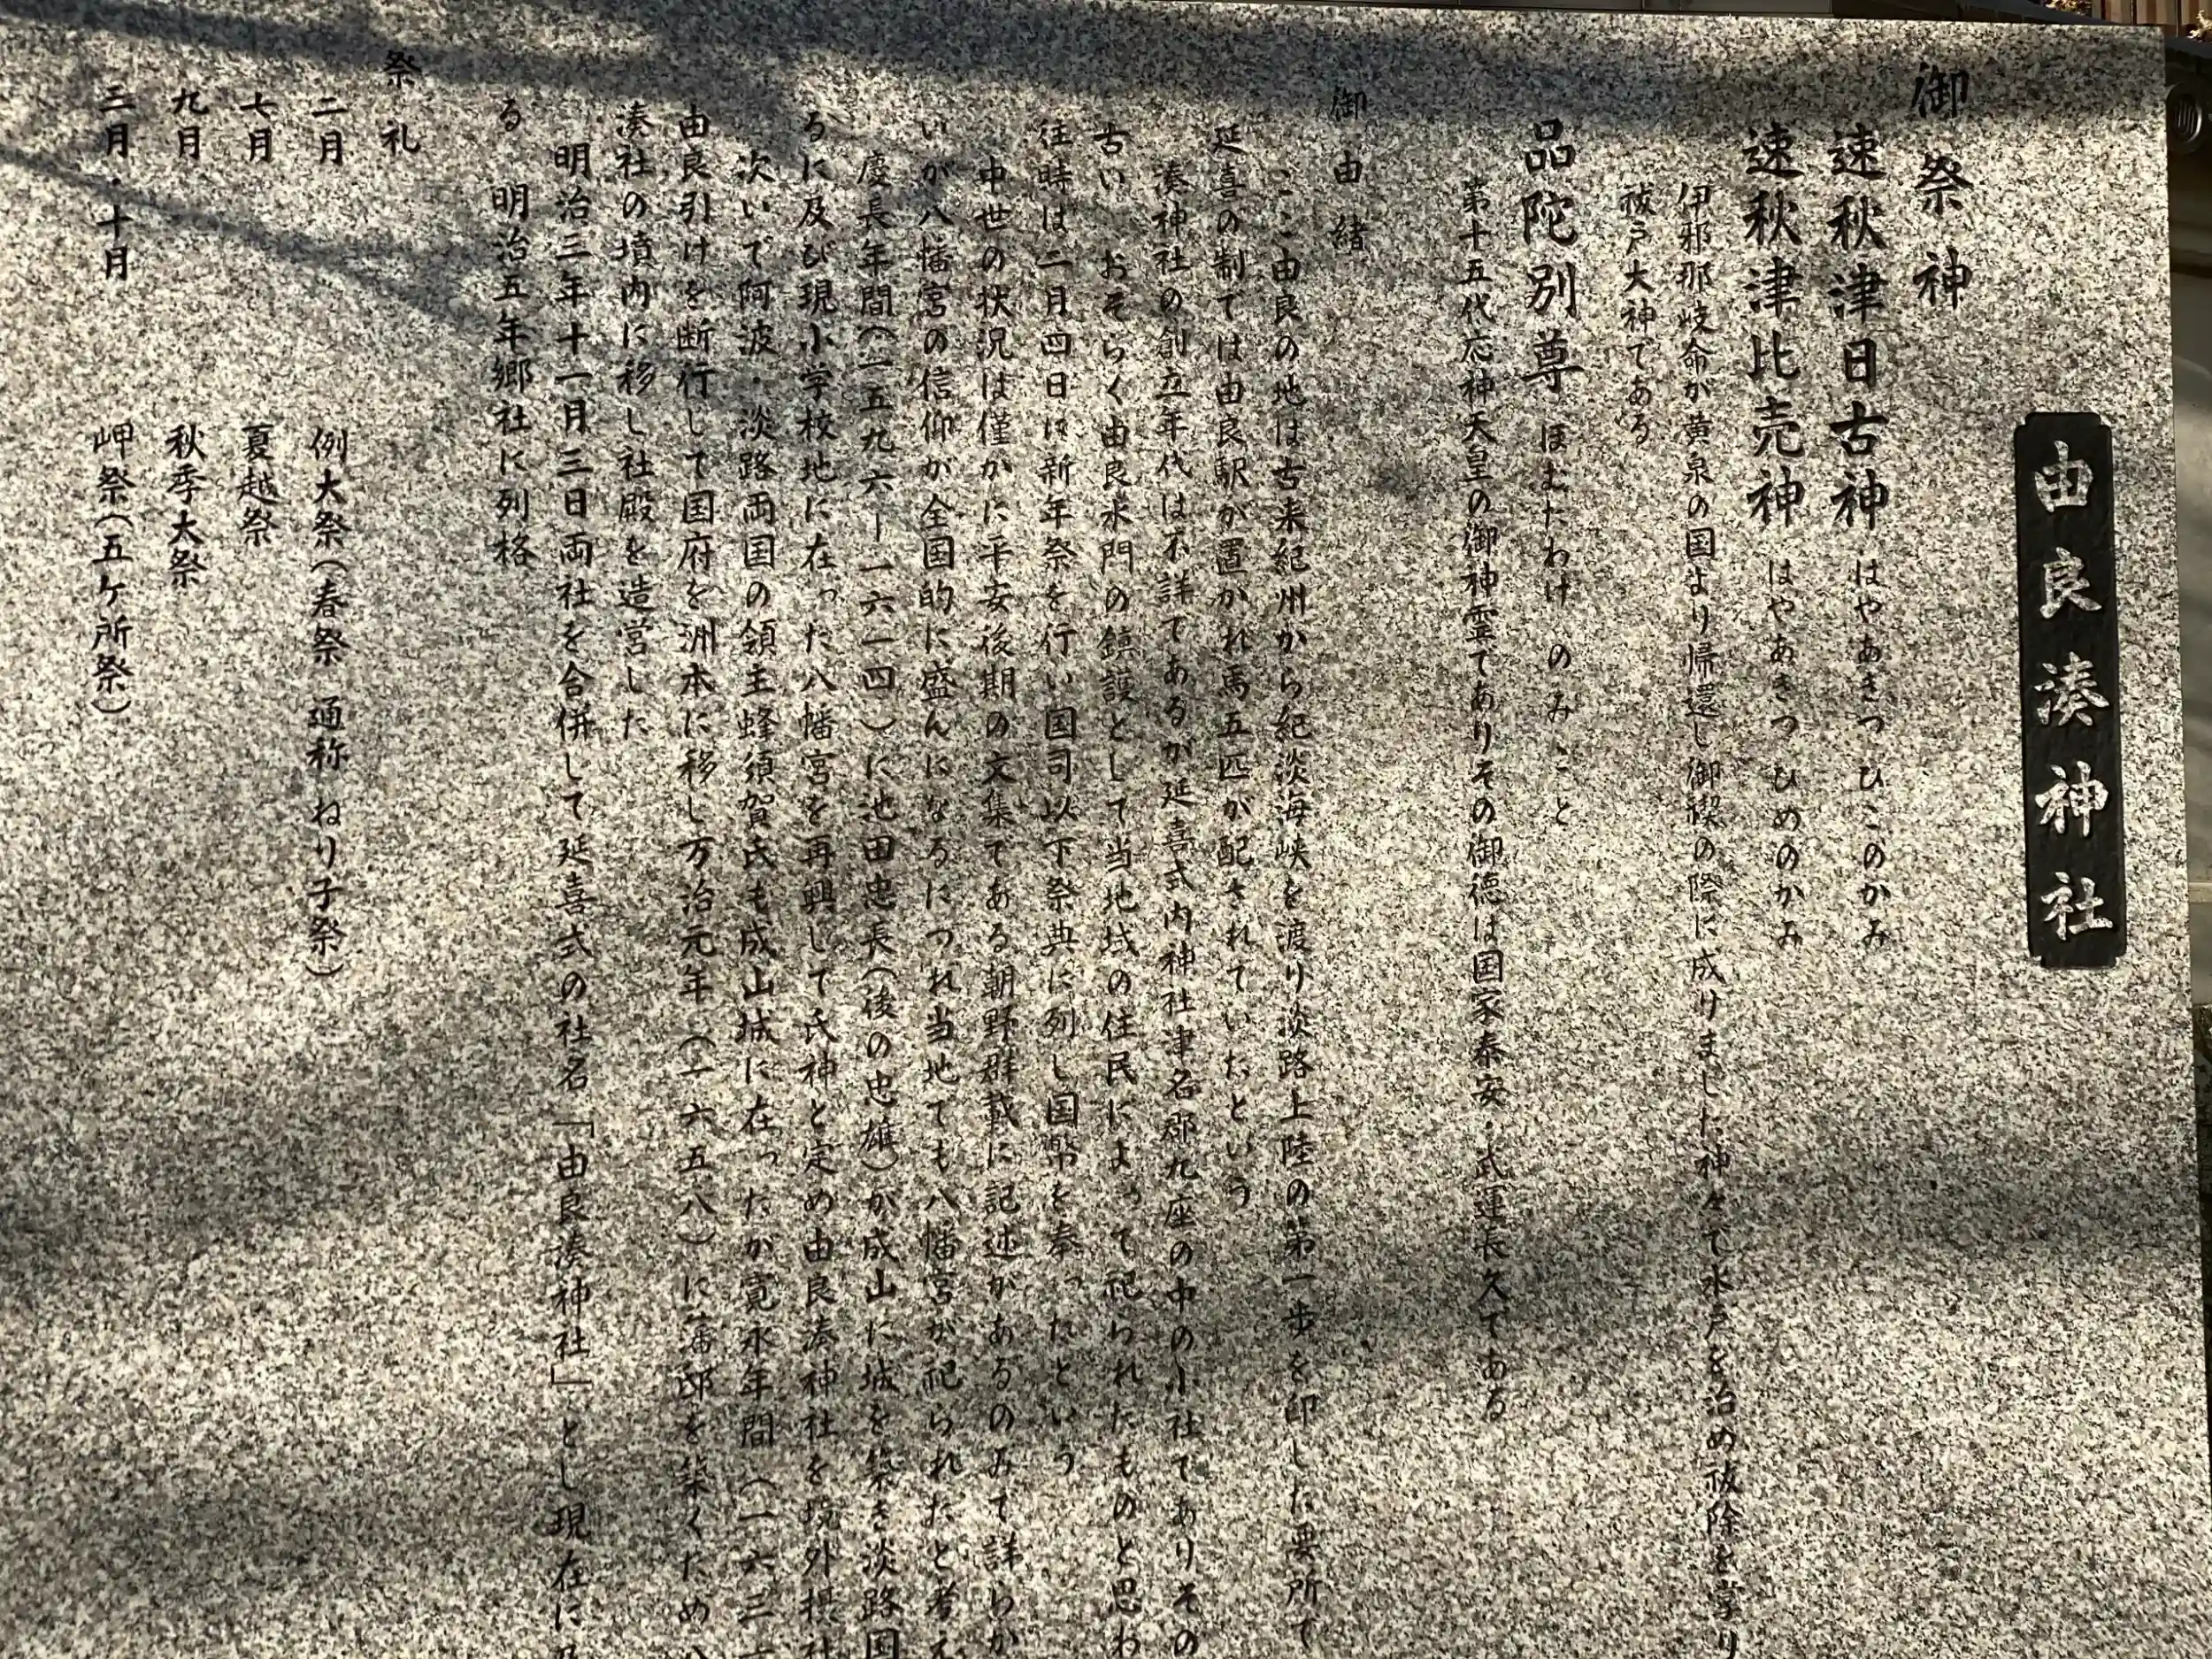 由良湊神社
御祭神
速秋津日古神 はやあきつひこのかみ
速秋津比売神 はやあきつひめのかみ
伊邪那岐命が黄泉の国より帰還し御禊の際に成りました神々で水戸を治め祓除を掌り
祓戸大神である
品陀別尊 ほむたわけのみこと
第十五代応神天皇の御神霊でありその御徳は国家泰安・武運長久である
御由緒
ここ由良の地は古来紀州から紀淡海峡を渡り淡路上陸の第一歩を印した要所で
延喜の制では由良駅が置かれ馬五匹が配されていたという
湊神社の創立年代は不詳であるが延喜式内神社津名郡九座の中の小社でありその
古い おそらく由良水門の鎮護として当地域の住民によって祀られたものと思わ
往時は二月四日に新年祭を行い国司以下祭典に列し国幣を奉ったという
中世の状況は僅かに平安後期の文集である朝野群載に記述があるのみで詳らか
いが八幡宮の信仰が全国的に盛んになるにつれ当地でも八幡宮が祀られたと考え
慶長年間(一五九六ー一六一四)に池田忠長(後の忠雄)が成山に城を築き淡路国
るに及び現小学校地に在った八幡宮を再興して氏神と定め由良湊神社を境外摂社
次いで阿波・淡路両国の領主蜂須賀氏も成山城に在ったが寛永年間(一六三一
由良引けを断行して国府を洲本に移し万治元年(一六五八)に藩邸を築くため八
湊社の境内に移し社殿を造営した
明治三年十一月三日両社を合併して延喜式の社名「由良湊神社」とし現在に及
る 明治五年郷社に列格
祭礼
二月 例大祭(春祭 通称ねり子祭)
七月 夏越祭
九月 秋季大祭
三月・十月 岬祭(五ヶ所祭)